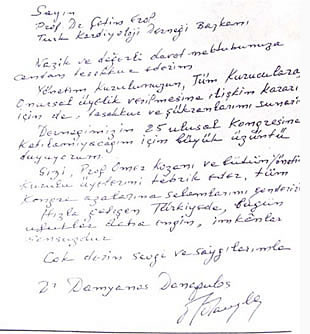 Sayın
Prof Dr Çetin Erol
Turk Kardiyoloji Derneği Başkanı
Nazik ve değerli davet mektubunuza
candan teşekkür ederim
Yönetim kurulumuzun, Tüm Kuruculara
Onursal üyelik verilmesine ilişkin kararı
için de, teşekkür ve şükranlarımı sunarım
Derneğimizin 25 ulusal kongresine
katılamıyacağım için büyük üzüntü
duyuyorum
Sizi, Prof Ömer Kozanı ve bütün
kurulu üyelerini tebrik eder, tüm
kongre azalarına selamlarımı gönderirim
Hızla gelişen Türkiyede, bugün
ufuklar daha engin, imkânlar
sonsuzdur
Çok derin sevgi ve saygılarımla
Dr Damyanos Danopulos